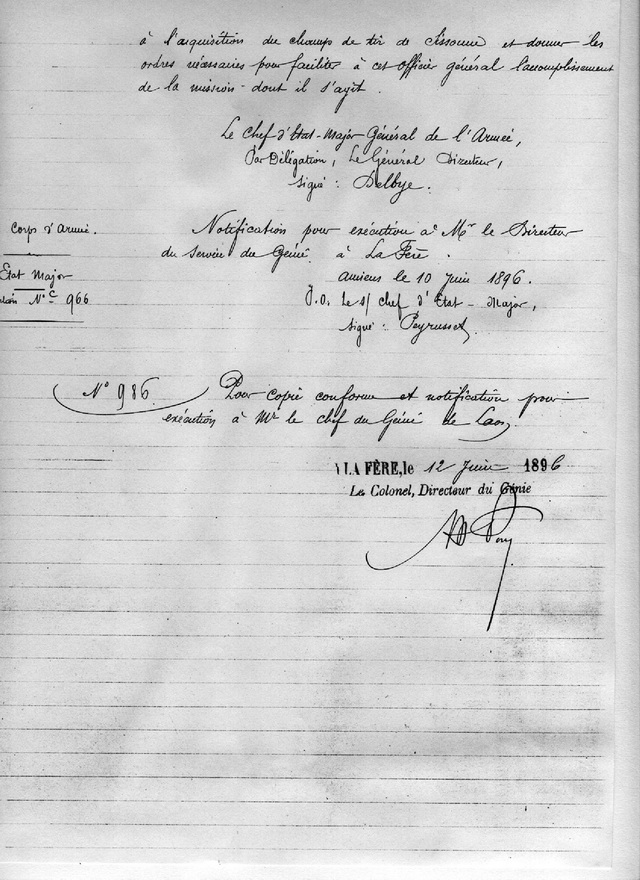 à l'acquisition du champ de tir de Sissonne et donner les
ordres nécessaires pour faciliter à cet officier général l'accomplissement
de la mission dont il s'agit.
Le Chef d'Etat-Major Général de l'Armée,
Par Délégation, Le Général Directeur,
signé : Delbye.
Corps d'Armée.
Etat Major
N° 966
Notification pour exécution à Mr le Directeur
du Service du Génie à La Fère.
Amiens le 10 juin 1896.
P.O. Le s/ chef d'Etat-Major,
signé : Peyrusset
N° 986.
Pour copie conforme et notification pour
exécution à Mr le chef du Génie de Laon.
LA FÈRE, le 12 juin 1896
Le Colonel, Directeur du Génie